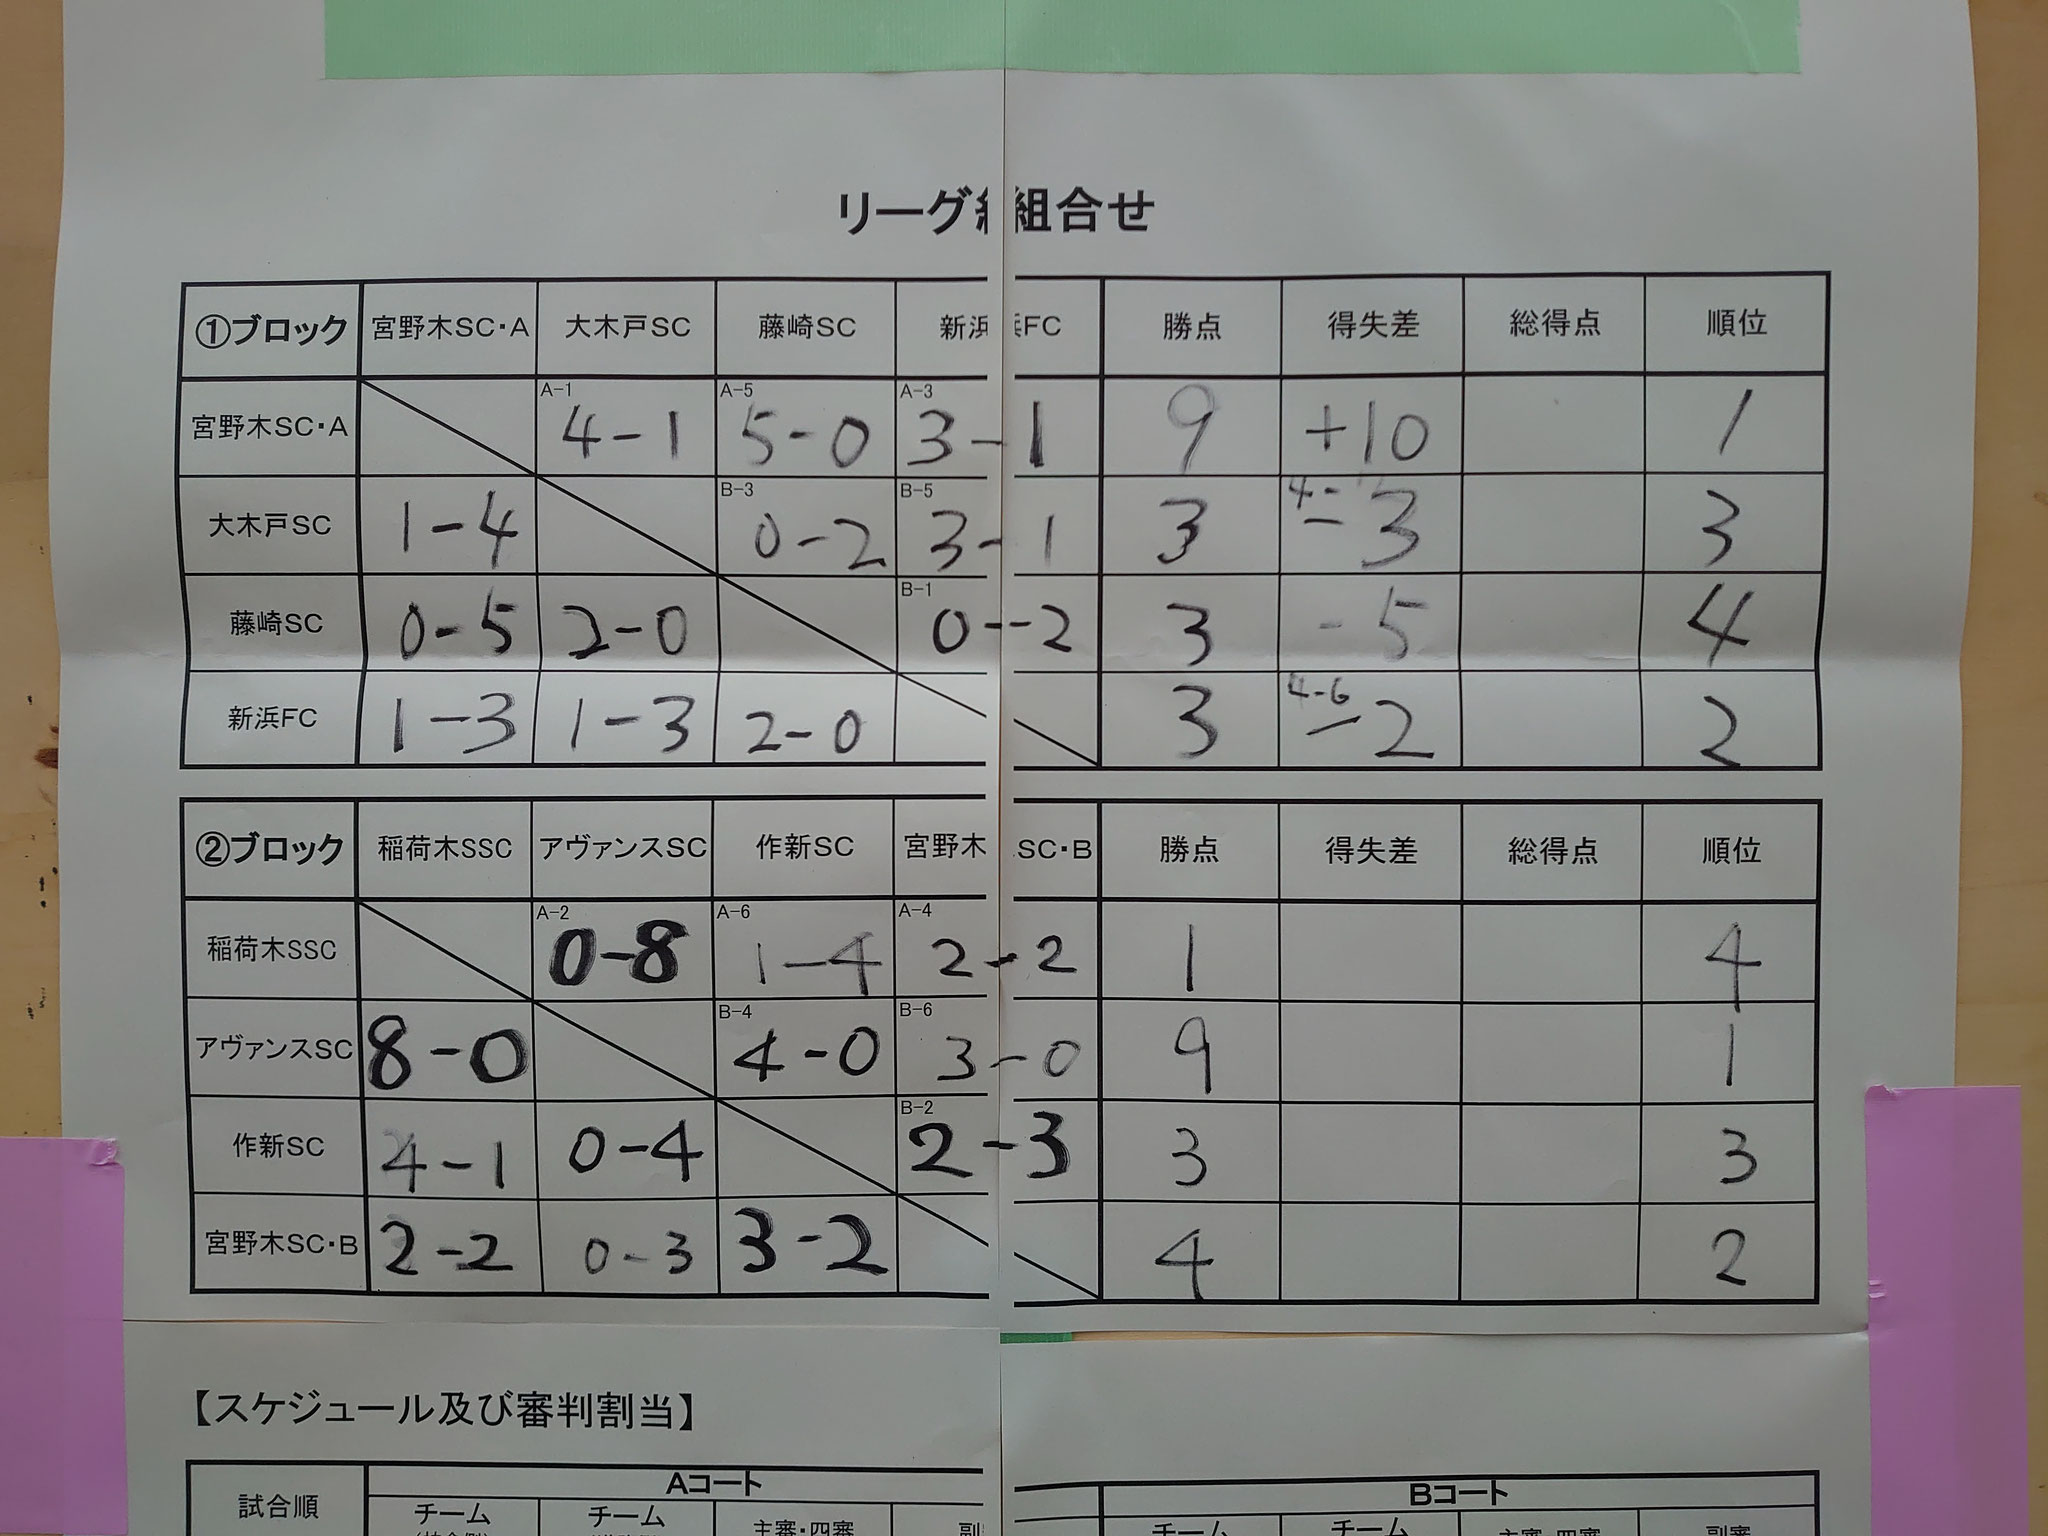 リーグ組合せ
①ブロック 宮野木SC・A 大木戸SC 藤崎SC 新浜FC 勝点 得失差 総得点 順位
宮野木SC・A A-1 4-1 A-5 5-0 A-3 3-1 9 +10 1
大木戸SC 1-4 B-3 0-2 B-5 3-1 3 4- -3 3
藤崎SC 0-5 2-0 B-1 0-2 3 -5 4
新浜FC 1-3 1-3 2-0 3 4-6 -2 2
②ブロック 稲荷木SSC アヴァンスSC 作新SC 宮野木SC・B 勝点 得失差 総得点 順位
稲荷木SSC A-2 0-8 A-6 1-4 A-4 2-2 1 4
アヴァンスSC 8-0 B-4 4-0 B-6 3-0 9 1
作新SC 4-1 0-4 B-2 2-3 3 3
宮野木SC・B 2-2 0-3 3-2 4 2
【スケジュール及び審判割当】
試合順 Aコート Bコート
チーム チーム 主審・四審 チーム チーム 主審・四審 副審